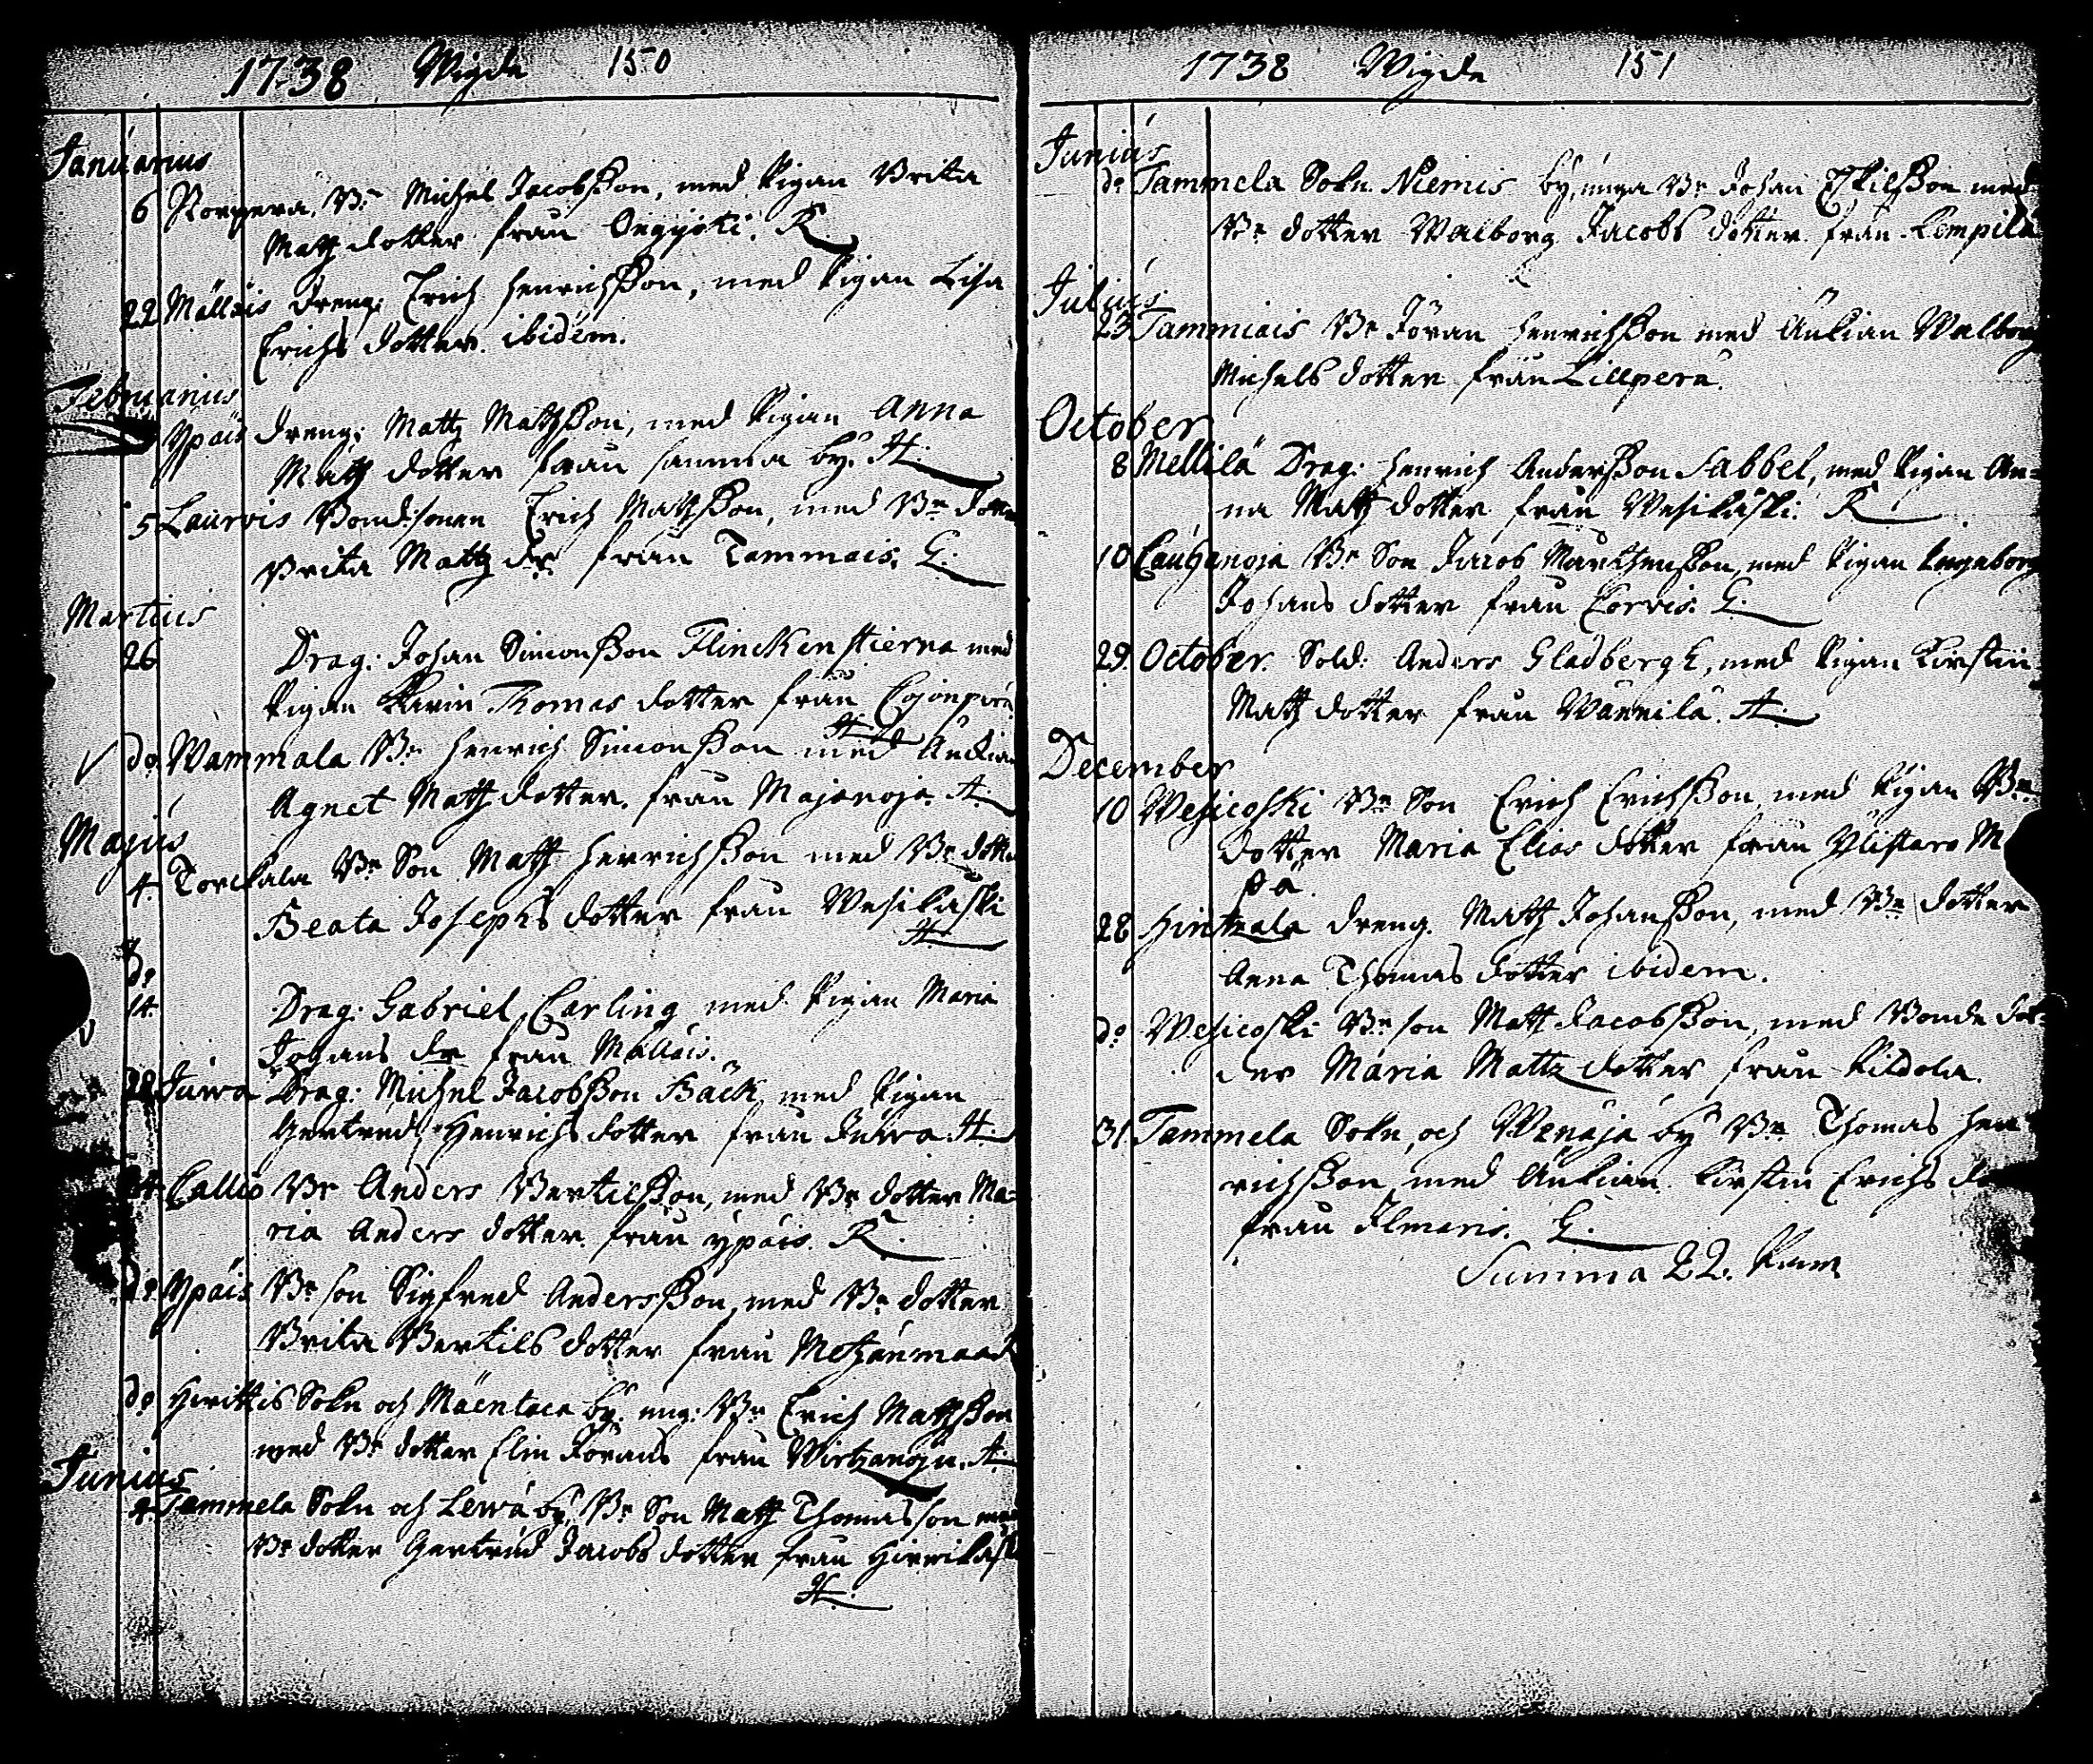 1738 Wigde 150
Januarius
6 Norpera, Br Michel Jacobsson, med Pigan Brita
Matz dotter från Orgjoki. R
22 Mälläis dreng: Erich Henrichsson, med Pigan Lisa
Erichs dotter. ibidem.
Februarius
Ypäis dreng: Mattz Matzsson, med Pigan Anna
Matz dotter från samma by. H.
5 Laurois Bond:sonen Erich Matzsson, med Br dotter
Brita Mattz dr från Tammais. G.
Martius
26 Drag: Johan Simonsson Flinckenstierna med
Pigan Karin Thomas dotter från Cojonperä.
H
do Wammala Br Henrich Simonsson med Änckian
Agnet Matz dotter. från Majanoja. H.
Majus
4. Torckala Br Son Matz Henrichsson med Br dotter
Beata Josephs dotter från Wesikåski
H
do
14. Drag: Gabriel Carling med Pigan Maria
Johans dr från Mälläis.
28 Juwa Drag: Michel Jacobsson Bäck, med Pigan
Gertrud Henrichs dotter från Juwa. H.
Callio Br Anders Bertilsson, med Br dotter Ma-
ria Anders dotter. från ypäis. R.
do Ypäis Br son Sigfred Andersson, med Br dotter
Brita Bertils dotter från Metzänmaa R
do Hvittis Sokn och Mäentaca by. ung: Br Erich Matzsson
med Br dotter Elin Jörans från Wirtzanoja. H.
Junius
4. Tammela Sokn och Lewä by, Br Son Matz Thomasson med
Br dotter Gertrud Jacobs dotter från Hirvikåski
H.
1738 Wigde 151
Junius
do Tammela Sokn Niemis by, unga Br Johan Eskilsson med
Br dotter Walborg Jacobs dotter från Kempilä
Julius
23 Tammiais Br Jöran Henrichsson med Änkian Walborg
Michels dotter från Lillperä.
October
8 Mellilä Drag: Henrich Andersson Sabbel, med Pigan An-
na Matz dotter från Wesikåski. R
10 Cauhanoja Br Son Jacob Martzensson, med Pigan Ingeborg
Johans dotter från Corvis. G.
29. October. Sold: Anders Gladbergh, med Pigan Kirstin
Matz dotter från Wännilä. H.
December
10 Wesicoski Br Son Erich Erichsson, med Pigan Br
dotter Maria Elias dotter från Ylistaro M
28 Hintzala dreng. Matz Johansson, med Br dotter
Anna Thomas dotter ibidem.
do Wesicoski Br son Matz Jacobsson, med Bonde dot-
ter Maria Mattz dotter från Pildola.
31 Tammela Sokn, och Wenäjä by Br Thomas Hen
richsson, med Änkian Kirstin Erichs do
från Ilmaris. G.
Summa 22. Paar